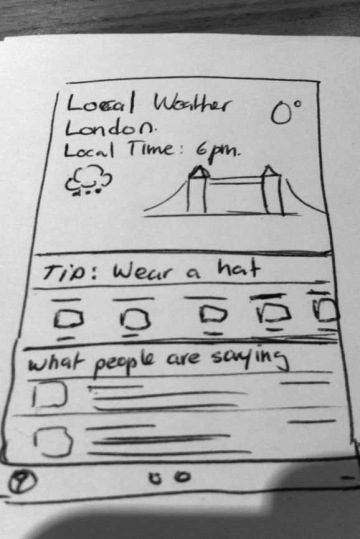 Local Weather
0°
London.
Local Time: 6pm.
Tip: Wear a hat
what people are saying